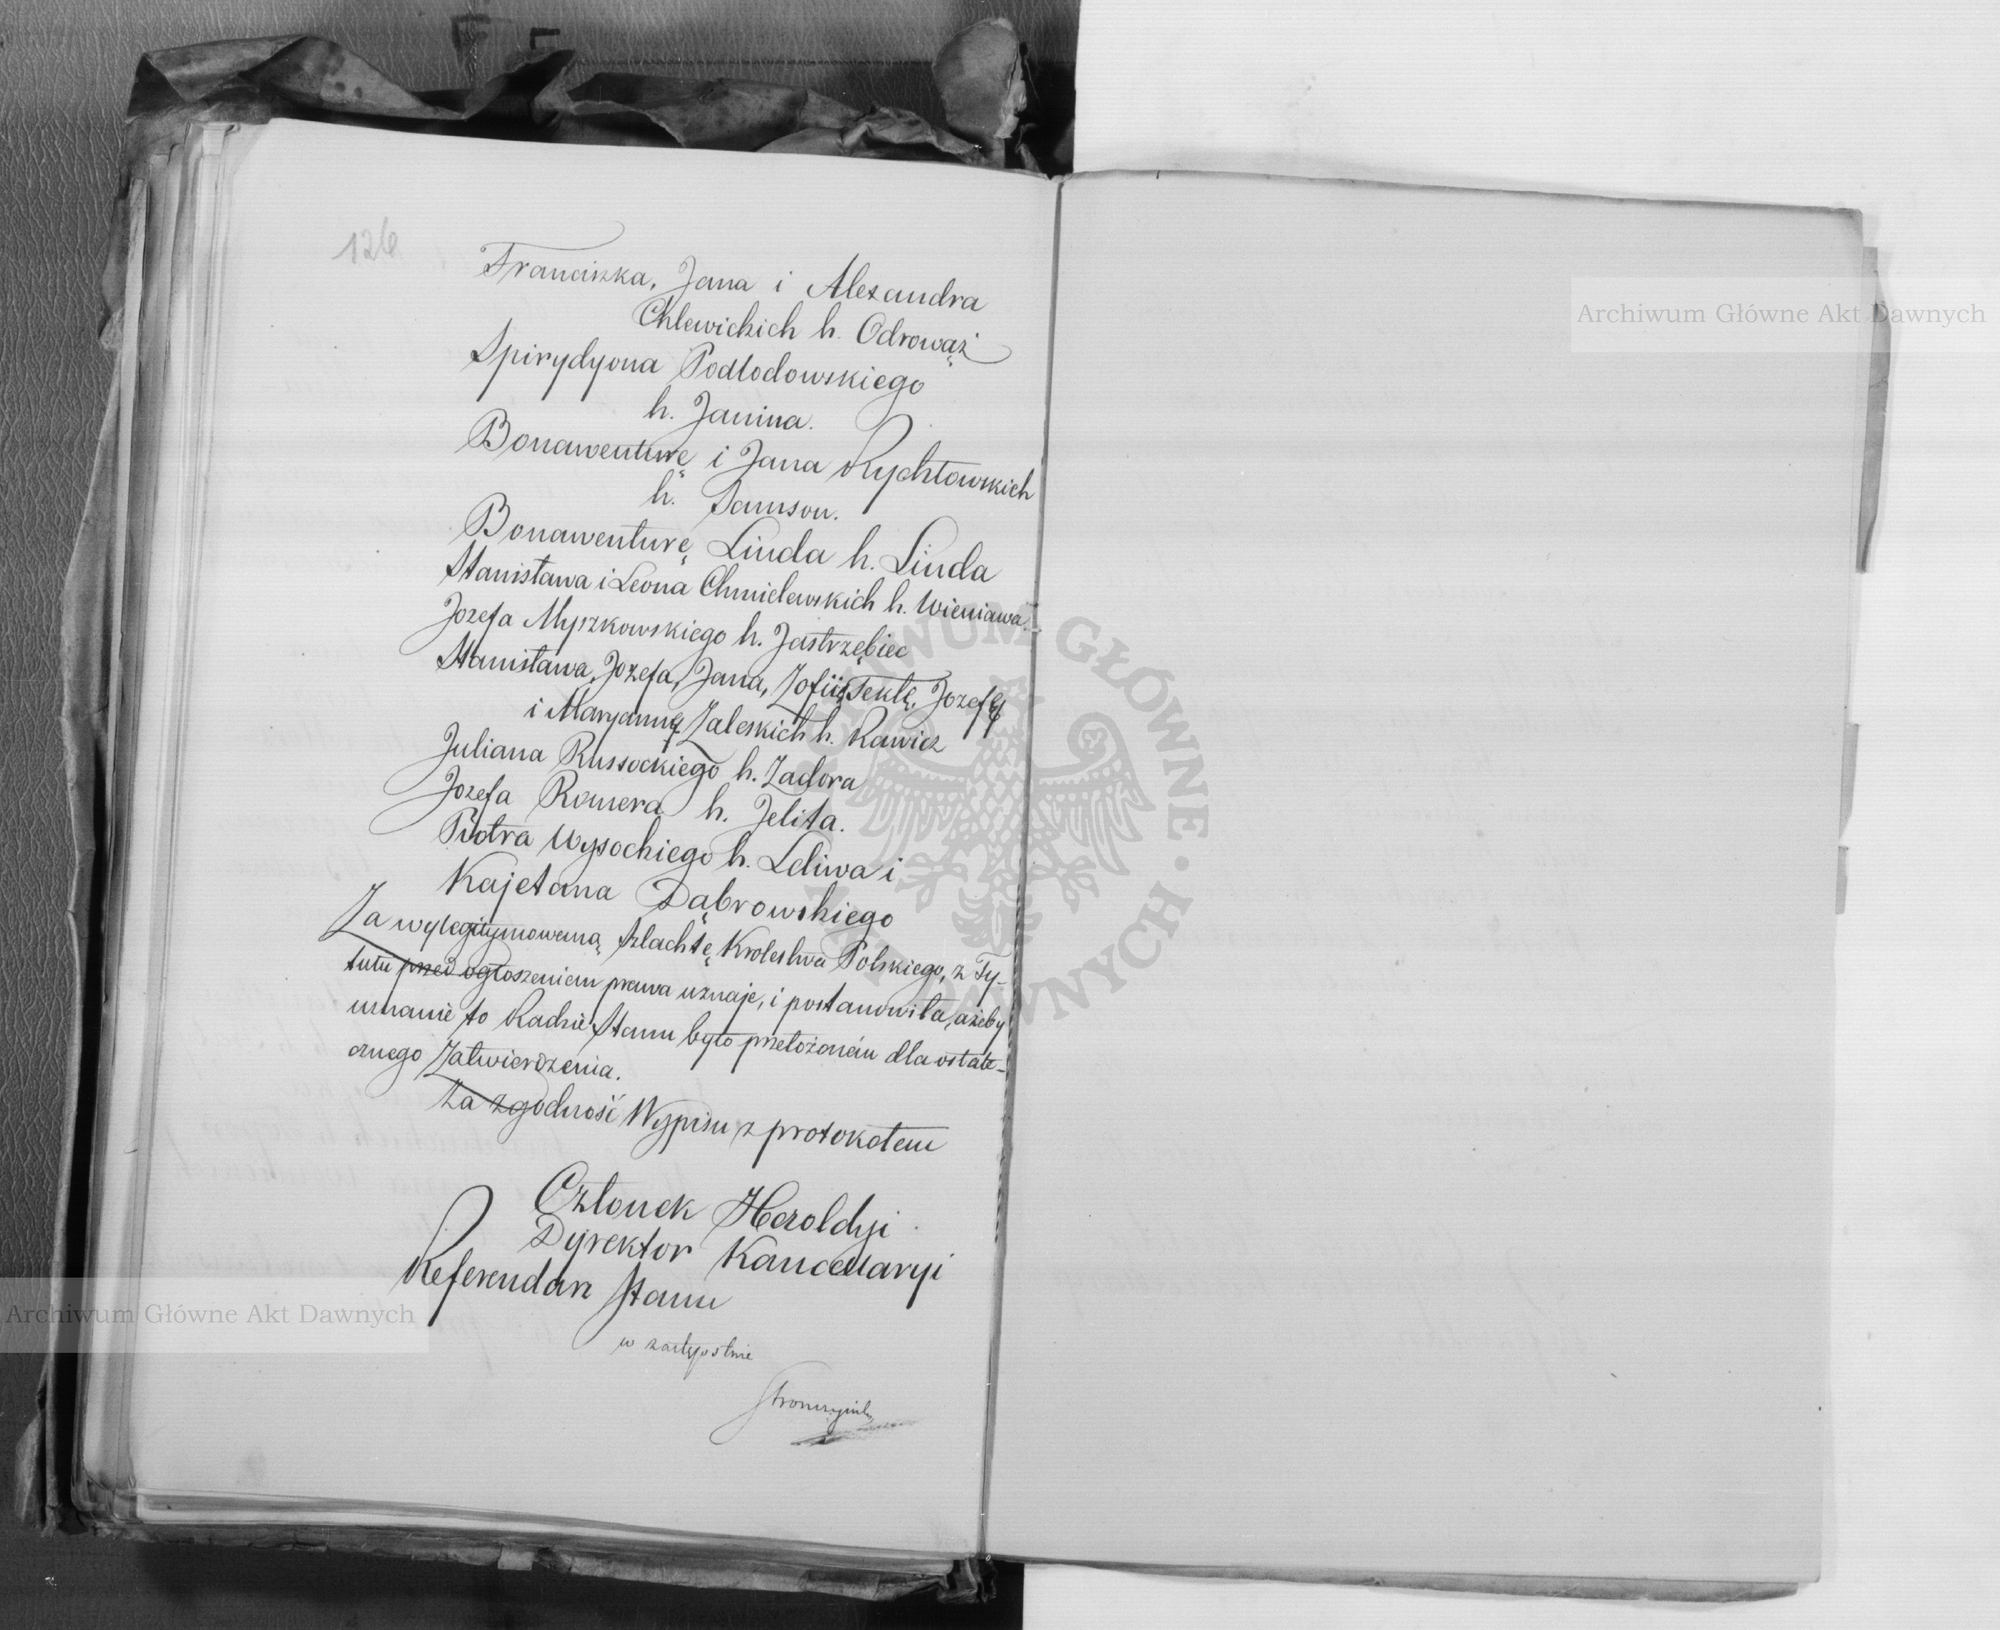 126
Franciszka, Jana i Alexandra
Chlewickich h. Odrowąż
Spirydyona Podlodowskiego
h. Janina.
Bonawenturę i Jana Rychłowskich
h. Samson.
Bonawenturę Linda h. Linda
Stanisława i Leona Chmielewskich h. Wieniawa
Jozefa Myszkowskiego h. Jastrzębiec
Stanisława, Jozefa, Jana, Zofiię Teklę, Jozefę
i Maryannę Zaleskich h. Rawicz
Juliana Russockiego h. Zadora
Jozefa Romera h. Jelita.
Piotra Wysockiego h. Leliwa i
Kajetana Dąbrowskiego
Za wylegitymowaną szlachtę Krolestwa Polskiego, z Ty-
tułu przed ogłoszeniem prawa uznaje, i postanowiła, ażeby
uznanie to Radzie Stanu było przełożoném dla ostate-
cznego Zatwierdzenia.
Za zgodność Wypisu z protokołem
Członek Heroldyi
Dyrektor Kancellaryi
Referendarz Stanu
w zastępstwie
Stronczyński
Archiwum Główne Akt Dawnych
Archiwum Główne Akt Dawnych
ARCHIWUM GŁÓWNE · AKT DAWNYCH ·